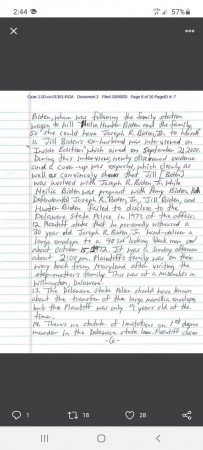 2:44
57%
Case 1:20-cv-01391-RGA Document 2 Filed 10/08/20 Page 6 of 10 PageID #: 7
Biden, whom was following the family station
wagon to kill Neilia Hunter Biden and the family,
so she could have Joseph R. Biden, Jr. to herself
11. Jill Biden's ex-husband was interviewed on
Inside Edition which aired on September 21, 2020.
During this interview, newly discovered evidence
and a cover-up was exposed, which clearly, as
well as convincely shows that Jill [Biden]
was involved with Joseph R. Biden, Jr. while
Neilia Biden was pregnant with Amy Biden. Both
Defendants Joseph R. Biden, Jr., Jill Biden, and
Hunter Biden failed to disclose to the
Delaware State Police in 1972 of the affair.
12. Plaintiff state that he personally witnessed a
30 year old Joseph R. Biden, Jr. hand-deliver a
large envelope to a looking black man on/
about October 15, 1972. It was a Sunday afternoon
about 2:00 pm. Plaintiff's family was on their
way back from Maryland after visiting the
step-mother's family. This was at a McDonald's in
Wilmington, Delaware.
13. The Delaware State Police should have known
about the transfer of the large manilla envelope
but the Plaintiff was only 9 years old at the
time.
14. There's no statute of limitations on 1st degree
murder in the Delaware state law. Plaintiff
-6-
1
18
28